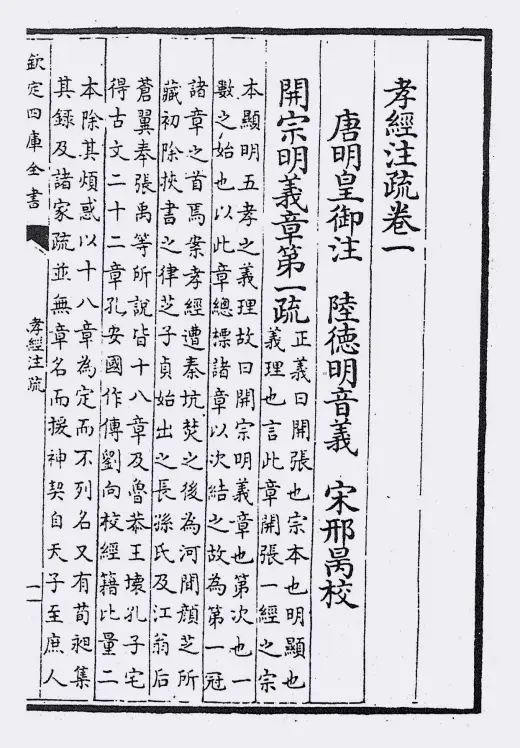 孝經注疏卷一
唐明皇御注 陸德明音義 宋邢昺校
開宗明義章第一疏
正義曰開張也宗本也明顯也
義理也言此章開張一經之宗
本顯明五孝之義理故曰開宗明義章也第次也一
數之始也以此章總標諸章以次結之故為第一冠
諸章之首焉案孝經遭秦坑焚之後為河間顏芝所
藏初除挾書之律芝子貞始出之長孫氏及江翁后
蒼翼奉張禹等所說皆十八章及魯恭王壞孔子宅
得古文二十二章孔安國作傳劉向校經籍比量二
本除其煩惑以十八章為定而不列名又有荀昶集
其錄及諸家疏並無章名而援神契自天子至庶人
欽定四庫全書
孝經注疏
一